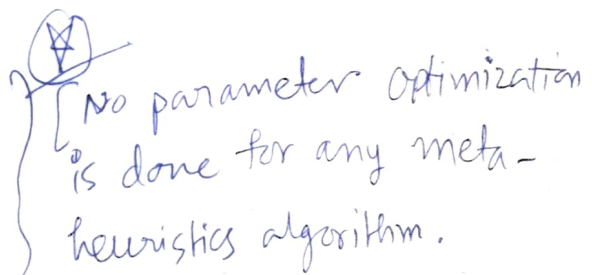 No parameter optimization
is done for any meta-
heuristics algorithm.